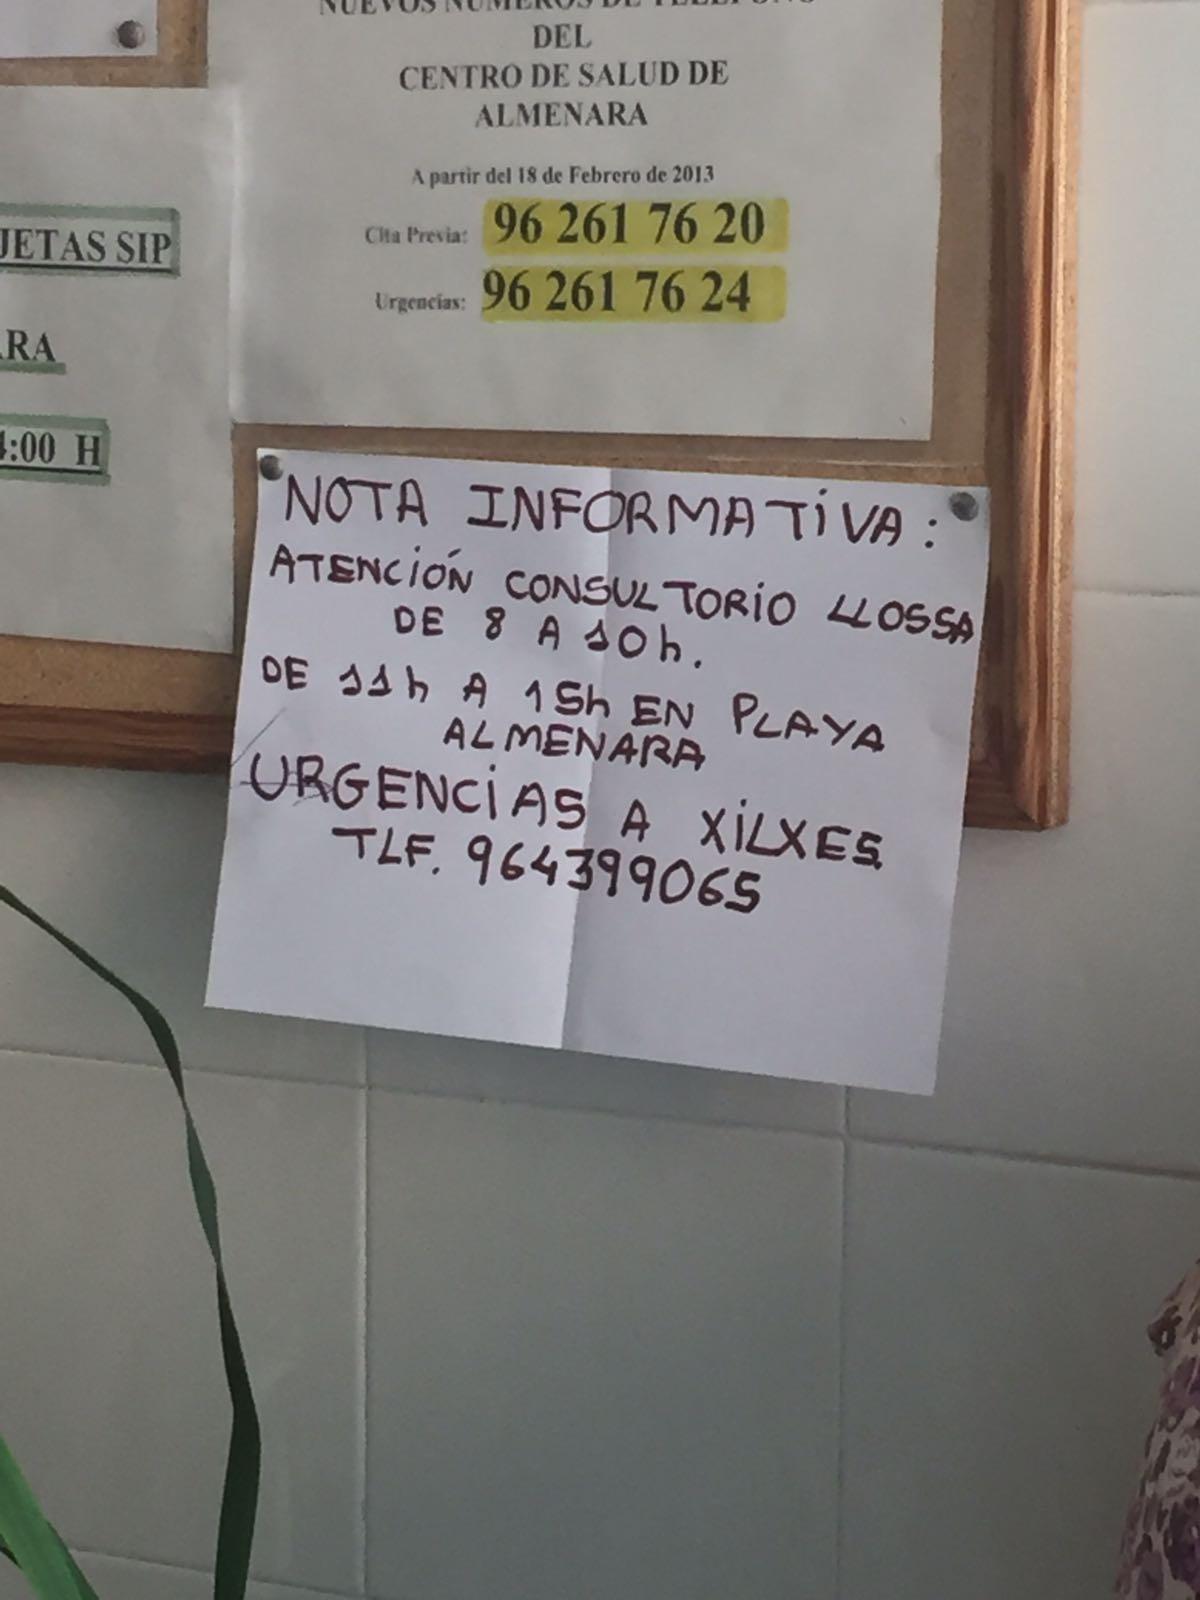 NUEVOS NÚMEROS DE TELÉFONO
DEL
CENTRO DE SALUD DE
ALMENARA
A partir del 18 de Febrero de 2013
Cita Previa: 96 261 76 20
Urgencias: 96 261 76 24
JETAS SIP
ARA
4:00 H
NOTA INFORMATIVA:
ATENCIÓN CONSULTORIO LLOSSA
DE 8 A 10h.
DE 11h A 15h EN PLAYA
ALMENARA
URGENCIAS A XILXES
TLF. 964399065